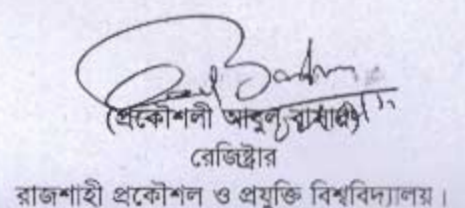 (প্রকৌশলী আবুল বাশার)
রেজিষ্ট্রার
রাজশাহী প্রকৌশল ও প্রযুক্তি বিশ্ববিদ্যালয়।